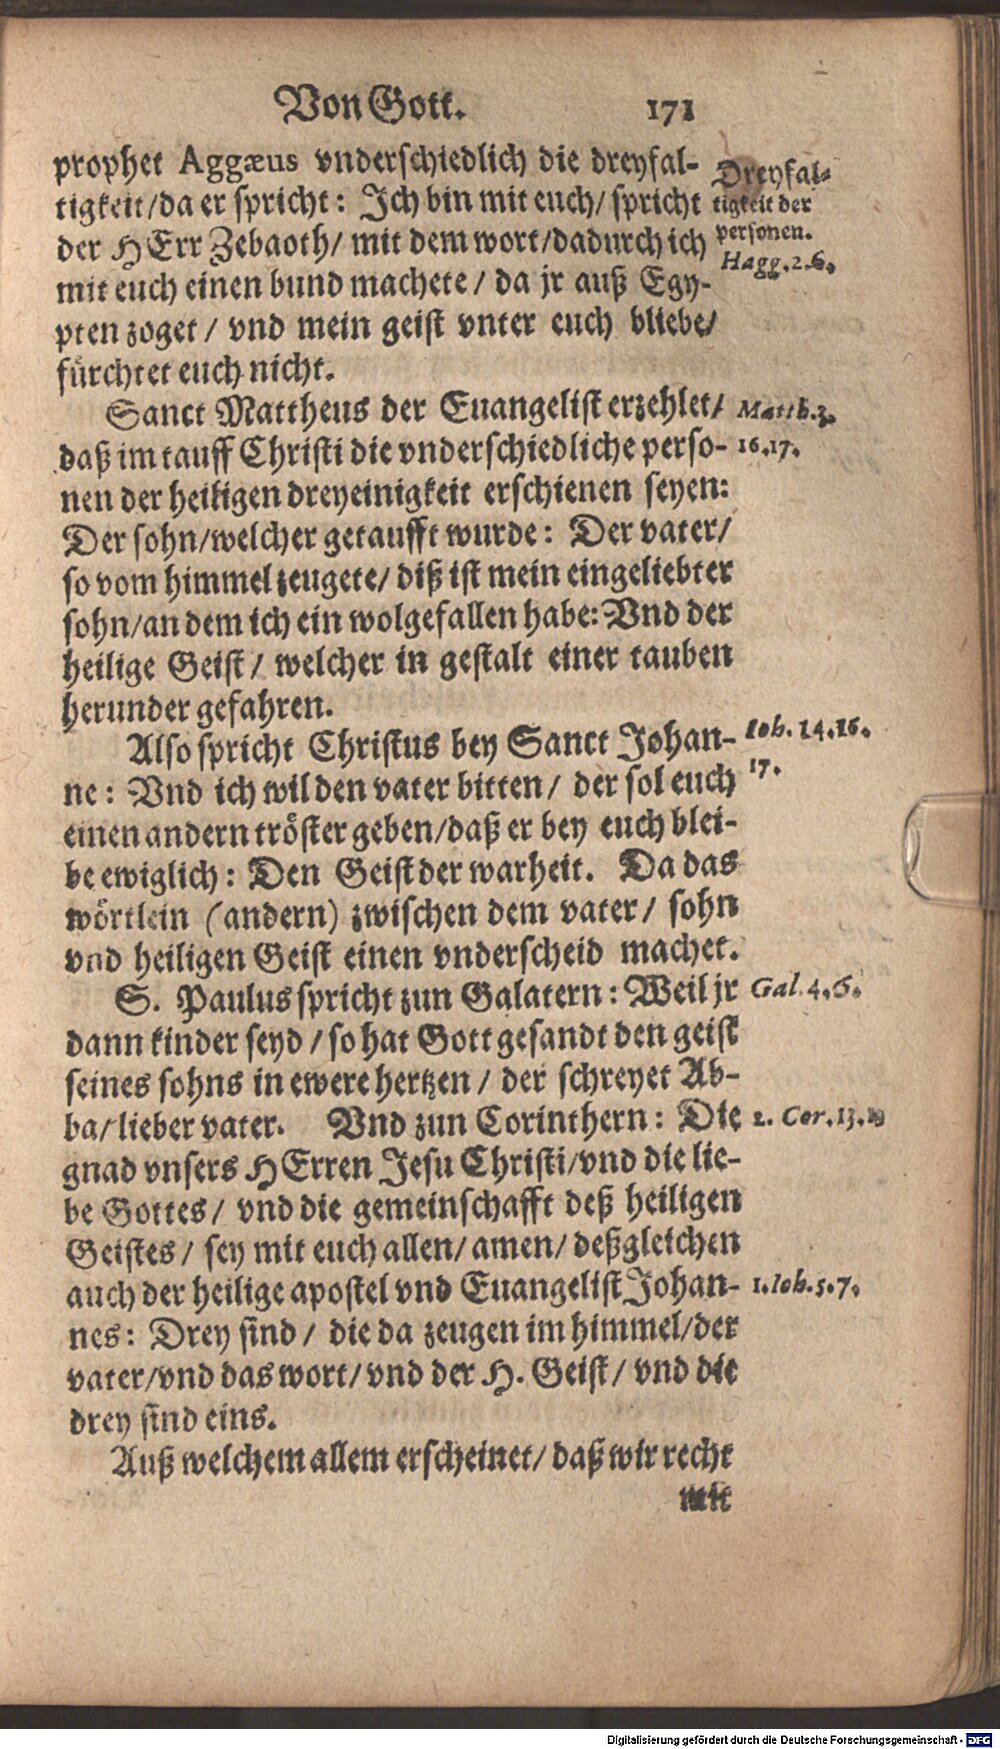 Von Gott. 171
prophet Aggæus vnderschiedlich die dreyfal-
tigkeit/da er spricht: Ich bin mit euch/ spricht
der HErr Zebaoth/ mit dem wort/dadurch ich
mit euch einen bund machete/ da jr auß Egy-
pten zoget/ vnd mein geist vnter euch bliebe/
fürchtet euch nicht.
Dreyfal-
tigkeit der
personen.
Hagg.2.6.
Sanct Mattheus der Euangelist erzehlet/
daß im tauff Christi die vnderschiedliche perso-
nen der heiligen dreyeinigkeit erschienen seyen:
Der sohn/welcher getaufft wurde: Der vater/
so vom himmel zeugete/ diß ist mein eingeliebter
sohn/an dem ich ein wolgefallen habe: Vnd der
heilige Geist/ welcher in gestalt einer tauben
herunder gefahren.
Matth.3.
16.17.
Also spricht Christus bey Sanct Johan-
ne: Vnd ich wil den vater bitten/ der sol euch
einen andern tröster geben/daß er bey euch blei-
be ewiglich: Den Geist der warheit. Da das
wörtlein (andern) zwischen dem vater/ sohn
vnd heiligen Geist einen vnderscheid machet.
Ioh. 14.16.
17.
S. Paulus spricht zun Galatern: Weil jr
dann kinder seyd/so hat Gott gesandt den geist
seines sohns in ewere hertzen/ der schreyet Ab-
ba/lieber vater. Vnd zun Corinthern: Die
gnad vnsers HErren Jesu Christi/vnd die lie-
be Gottes/ vnd die gemeinschafft deß heiligen
Geistes/ sey mit euch allen/amen/deßgleichen
auch der heilige apostel vnd Euangelist Johan-
nes: Drey sind/ die da zeugen im himmel/der
vater/vnd das wort/vnd der H. Geist/ vnd die
drey sind eins.
Gal.4.6.
2. Cor.13.
1.Ioh.5.7.
Auß welchem allem erscheinet/daß wir recht
mit
Digitalisierung gefördert durch die Deutsche Forschungsgemeinschaft - DFG